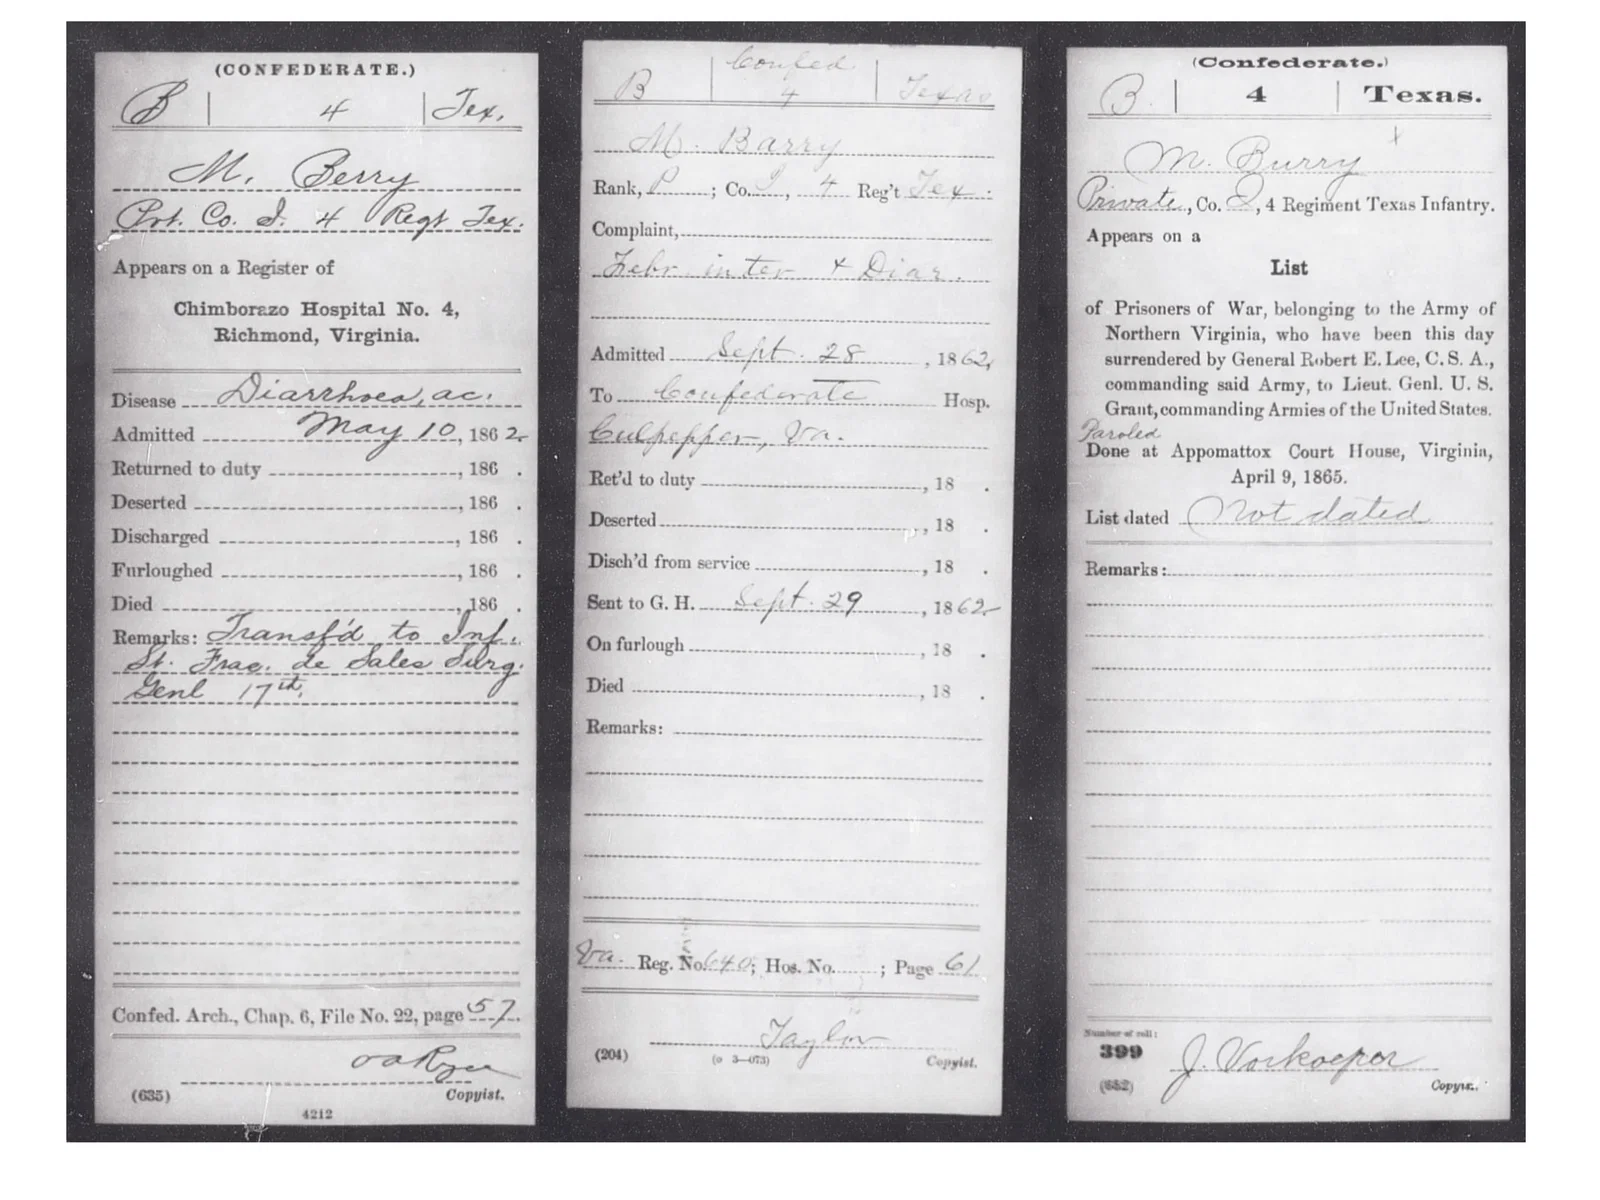 (CONFEDERATE.)
B | 4 | Tex.
M. Berry
Pvt. Co. I. 4 Regt Tex.
Appears on a Register of
Chimborazo Hospital No. 4,
Richmond, Virginia.
Disease Diarrhoea, ac.
Admitted May 10, 1862
Returned to duty , 186 .
Deserted , 186 .
Discharged , 186 .
Furloughed , 186 .
Died , 186 .
Remarks: Transf'd to Inf.
St. Frac. de Sales Surg.
Genl 17th.
Confed. Arch., Chap. 6, File No. 22, page 57.
Copyist.
(635)
4212
Confed
B | 4 | Texas
M. Barry
Rank, P ; Co. I, 4 Reg't Tex.
Complaint,
Febr. inter + Diar.
Admitted Sept. 28 , 1862,
To Confederate Hosp.
Culpepper, Va.
Ret'd to duty , 18 .
Deserted , 18 .
Disch'd from service , 18 .
Sent to G. H. Sept. 29 , 1862
On furlough , 18 .
Died , 18 .
Remarks:
Va. Reg. No. 640; Hos. No. ; Page 61
Taylor
(204) (o 3—073) Copyist.
(Confederate.)
B. | 4 | Texas.
M. Burry
Private, Co. I, 4 Regiment Texas Infantry.
Appears on a
List
of Prisoners of War, belonging to the Army of
Northern Virginia, who have been this day
surrendered by General Robert E. Lee, C. S. A.,
commanding said Army, to Lieut. Genl. U. S.
Grant, commanding Armies of the United States.
Paroled
Done at Appomattox Court House, Virginia,
April 9, 1865.
List dated Not dated
Remarks:
Number of roll:
399 J. Vorkoeper
(652) Copyist.